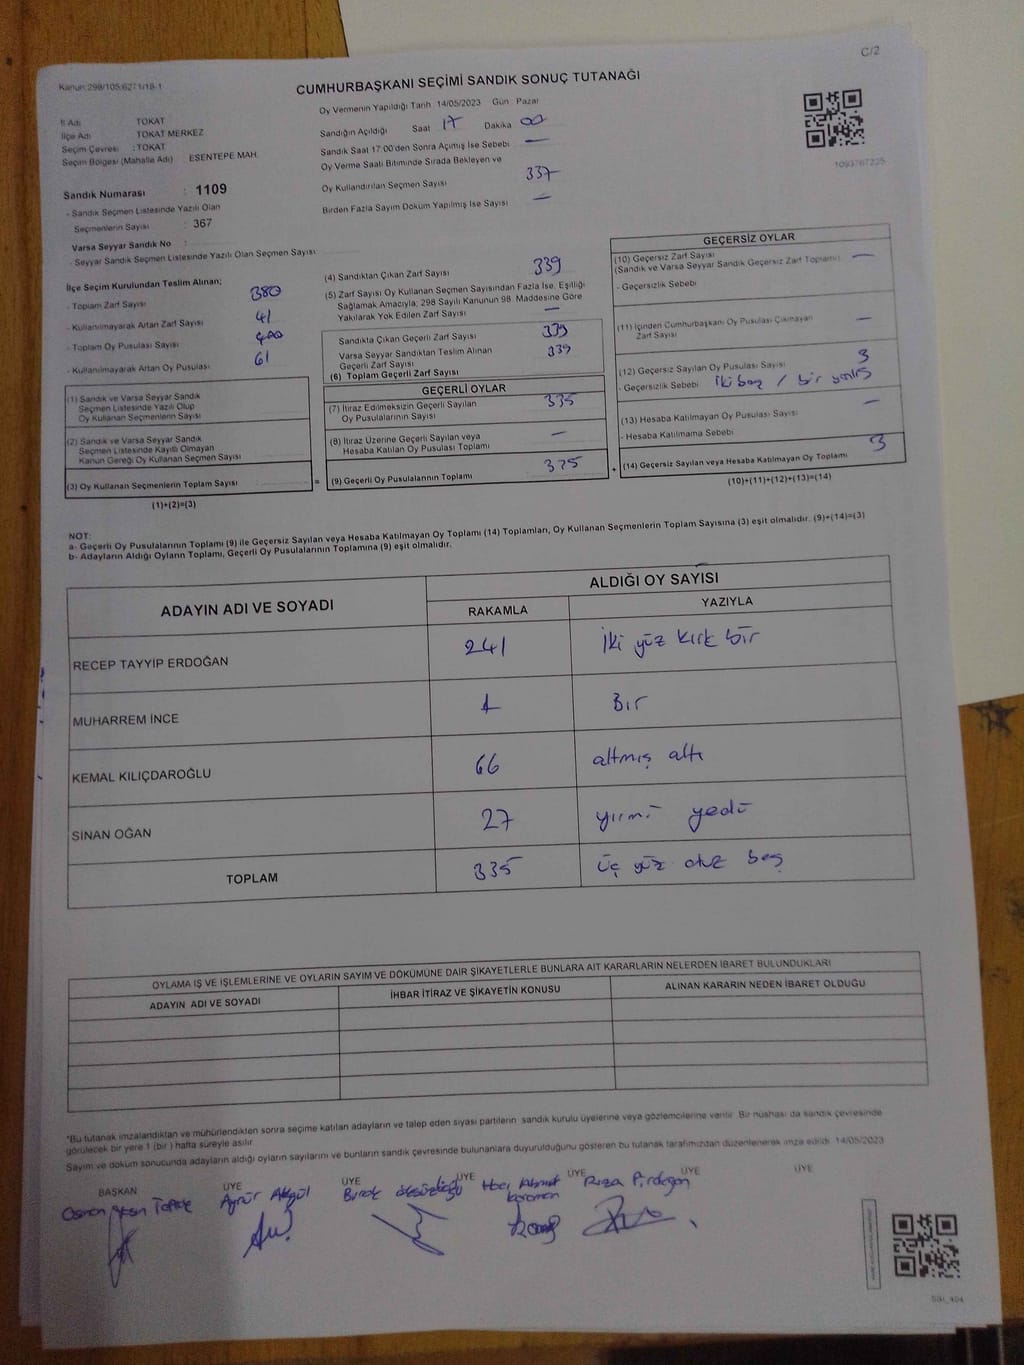 C/2
Kanun: 298/105,6271/18-1
CUMHURBAŞKANI SEÇİMİ SANDIK SONUÇ TUTANAĞI
İl Adı TOKAT
İlçe Adı TOKAT MERKEZ
Seçim Çevresi : TOKAT
Seçim Bölgesi (Mahalle Adı) : ESENTEPE MAH.
Sandık Numarası : 1109
- Sandık Seçmen Listesinde Yazılı Olan
Seçmenlerin Sayısı : 367
Varsa Seyyar Sandık No :
- Seyyar Sandık Seçmen Listesinde Yazılı Olan Seçmen Sayısı :
Oy Vermenin Yapıldığı Tarih 14/05/2023 Gün : Pazar
Sandığın Açıldığı Saat 17 Dakika 00
Sandık Saat 17:00'den Sonra Açmış İse Sebebi —
Oy Verme Saati Bitiminde Sırada Bekleyen ve
Oy Kullandırılan Seçmen Sayısı 337
Birden Fazla Sayım Döküm Yapılmış İse Sayısı —
1093767225
İlçe Seçim Kurulundan Teslim Alınan;
- Toplam Zarf Sayısı 380
- Kullanılmayarak Artan Zarf Sayısı 41
- Toplam Oy Pusulası Sayısı 400
- Kullanılmayarak Artan Oy Pusulası 61
(1) Sandık ve Varsa Seyyar Sandık
Seçmen Listesinde Yazılı Olup
Oy Kullanan Seçmenlerin Sayısı
(2) Sandık ve Varsa Seyyar Sandık
Seçmen Listesinde Kayıtlı Olmayan
Kanun Gereği Oy Kullanan Seçmen Sayısı
(3) Oy Kullanan Seçmenlerin Toplam Sayısı
(1)+(2)=(3)
(4) Sandıktan Çıkan Zarf Sayısı 339
(5) Zarf Sayısı Oy Kullanan Seçmen Sayısından Fazla İse, Eşitliği
Sağlamak Amacıyla; 298 Sayılı Kanunun 98. Maddesine Göre
Yakılarak Yok Edilen Zarf Sayısı —
Sandıkta Çıkan Geçerli Zarf Sayısı 339
Varsa Seyyar Sandıktan Teslim Alınan
Geçerli Zarf Sayısı 339
(6) Toplam Geçerli Zarf Sayısı
GEÇERLİ OYLAR
(7) İtiraz Edilmeksizin Geçerli Sayılan
Oy Pusulalarının Sayısı 335
(8) İtiraz Üzerine Geçerli Sayılan veya
Hesaba Katılan Oy Pusulası Toplamı —
= (9) Geçerli Oy Pusulalarının Toplamı 335 +
GEÇERSİZ OYLAR
(10) Geçersiz Zarf Sayısı
(Sandık ve Varsa Seyyar Sandık Geçersiz Zarf Toplamı) —
- Geçersizlik Sebebi
(11) İçinden Cumhurbaşkanı Oy Pusulası Çıkmayan
Zarf Sayısı —
(12) Geçersiz Sayılan Oy Pusulası Sayısı 3
- Geçersizlik Sebebi iki boş / bir yanlış
(13) Hesaba Katılmayan Oy Pusulası Sayısı —
- Hesaba Katılmama Sebebi
(14) Geçersiz Sayılan veya Hesaba Katılmayan Oy Toplamı 3
(10)+(11)+(12)+(13)=(14)
NOT:
a- Geçerli Oy Pusulalarının Toplamı (9) ile Geçersiz Sayılan veya Hesaba Katılmayan Oy Toplamı (14) Toplamları, Oy Kullanan Seçmenlerin Toplam Sayısına (3) eşit olmalıdır. (9)+(14)=(3)
b- Adayların Aldığı Oyların Toplamı, Geçerli Oy Pusulalarının Toplamına (9) eşit olmalıdır.
ADAYIN ADI VE SOYADI ALDIĞI OY SAYISI
RAKAMLA YAZIYLA
RECEP TAYYİP ERDOĞAN 241 İki yüz kırk bir
MUHARREM İNCE 1 Bir
KEMAL KILIÇDAROĞLU 66 altmış altı
SİNAN OĞAN 27 yirmi yedi
TOPLAM 335 üç yüz otuz beş
OYLAMA İŞ VE İŞLEMLERİNE VE OYLARIN SAYIM VE DÖKÜMÜNE DAİR ŞİKAYETLERLE BUNLARA AİT KARARLARIN NELERDEN İBARET BULUNDUKLARI
ADAYIN ADI VE SOYADI İHBAR İTİRAZ VE ŞİKAYETİN KONUSU ALINAN KARARIN NEDEN İBARET OLDUĞU
*Bu tutanak imzalandıktan ve mühürlendikten sonra seçime katılan adayların ve talep eden siyasi partilerin sandık kurulu üyelerine veya gözlemcilerine verilir. Bir nüshası da sandık çevresinde
görülecek bir yere 1 (bir) hafta süreyle asılır.
Sayım ve döküm sonucunda adayların aldığı oyların sayılarını ve bunların sandık çevresinde bulunanlara duyurulduğunu gösteren bu tutanak tarafımızdan düzenlenerek imza edildi. 14/05/2023
BAŞKAN ÜYE ÜYE ÜYE ÜYE ÜYE ÜYE
Osman Aynur Akgül Burak Ahmet Rıza Pirdoğan
Karaman